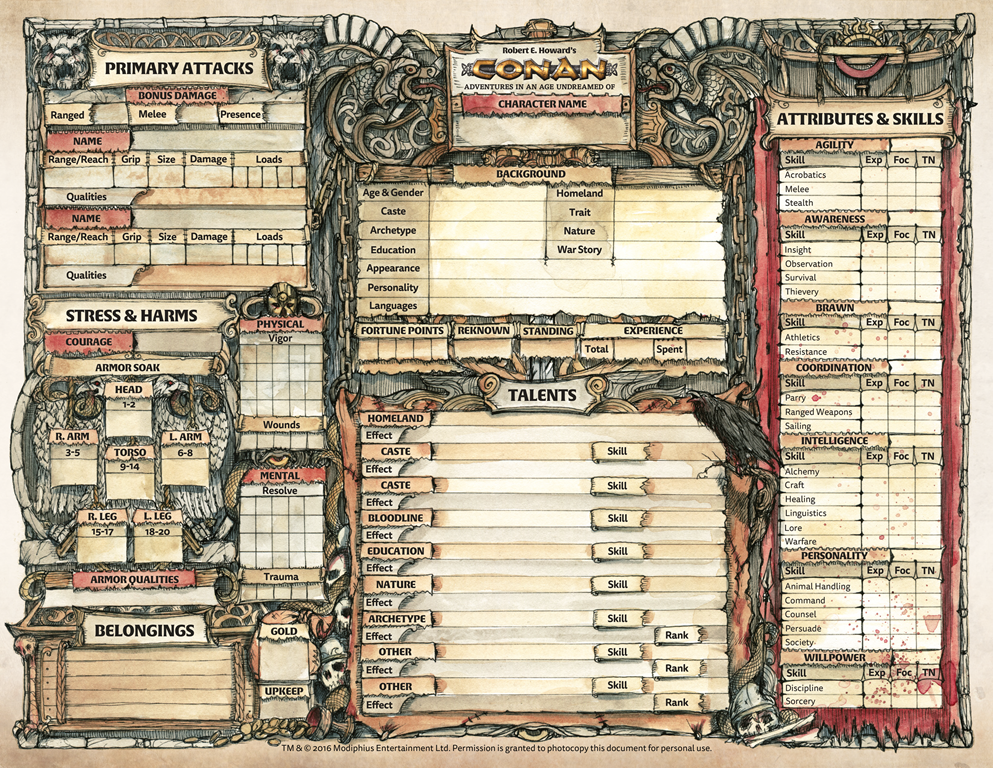 PRIMARY ATTACKS
BONUS DAMAGE
Ranged Melee Presence
NAME
Range/Reach Grip Size Damage Loads
Qualities
NAME
Range/Reach Grip Size Damage Loads
Qualities
STRESS & HARMS
COURAGE
ARMOR SOAK
HEAD
1-2
R. ARM
3-5
TORSO
9-14
L. ARM
6-8
R. LEG
15-17
L. LEG
18-20
ARMOR QUALITIES
PHYSICAL
Vigor
Wounds
MENTAL
Resolve
Trauma
BELONGINGS
GOLD
UPKEEP
Robert E. Howard's
CONAN
ADVENTURES IN AN AGE UNDREAMED OF
CHARACTER NAME
BACKGROUND
Age & Gender Homeland
Caste Trait
Archetype Nature
Education War Story
Appearance
Personality
Languages
FORTUNE POINTS REKNOWN STANDING EXPERIENCE
Total Spent
TALENTS
HOMELAND
Effect
CASTE Skill
Effect
CASTE Skill
Effect
BLOODLINE Skill
Effect
EDUCATION Skill
Effect
NATURE Skill
Effect
ARCHETYPE Skill
Effect Rank
OTHER Skill
Effect Rank
OTHER Skill
Effect Rank
ATTRIBUTES & SKILLS
AGILITY
Skill Exp Foc TN
Acrobatics
Melee
Stealth
AWARENESS
Skill Exp Foc TN
Insight
Observation
Survival
Thievery
BRAWN
Skill Exp Foc TN
Athletics
Resistance
COORDINATION
Skill Exp Foc TN
Parry
Ranged Weapons
Sailing
INTELLIGENCE
Skill Exp Foc TN
Alchemy
Craft
Healing
Linguistics
Lore
Warfare
PERSONALITY
Skill Exp Foc TN
Animal Handling
Command
Counsel
Persuade
Society
WILLPOWER
Skill Exp Foc TN
Discipline
Sorcery
TM & © 2016 Modiphius Entertainment Ltd. Permission is granted to photocopy this document for personal use.